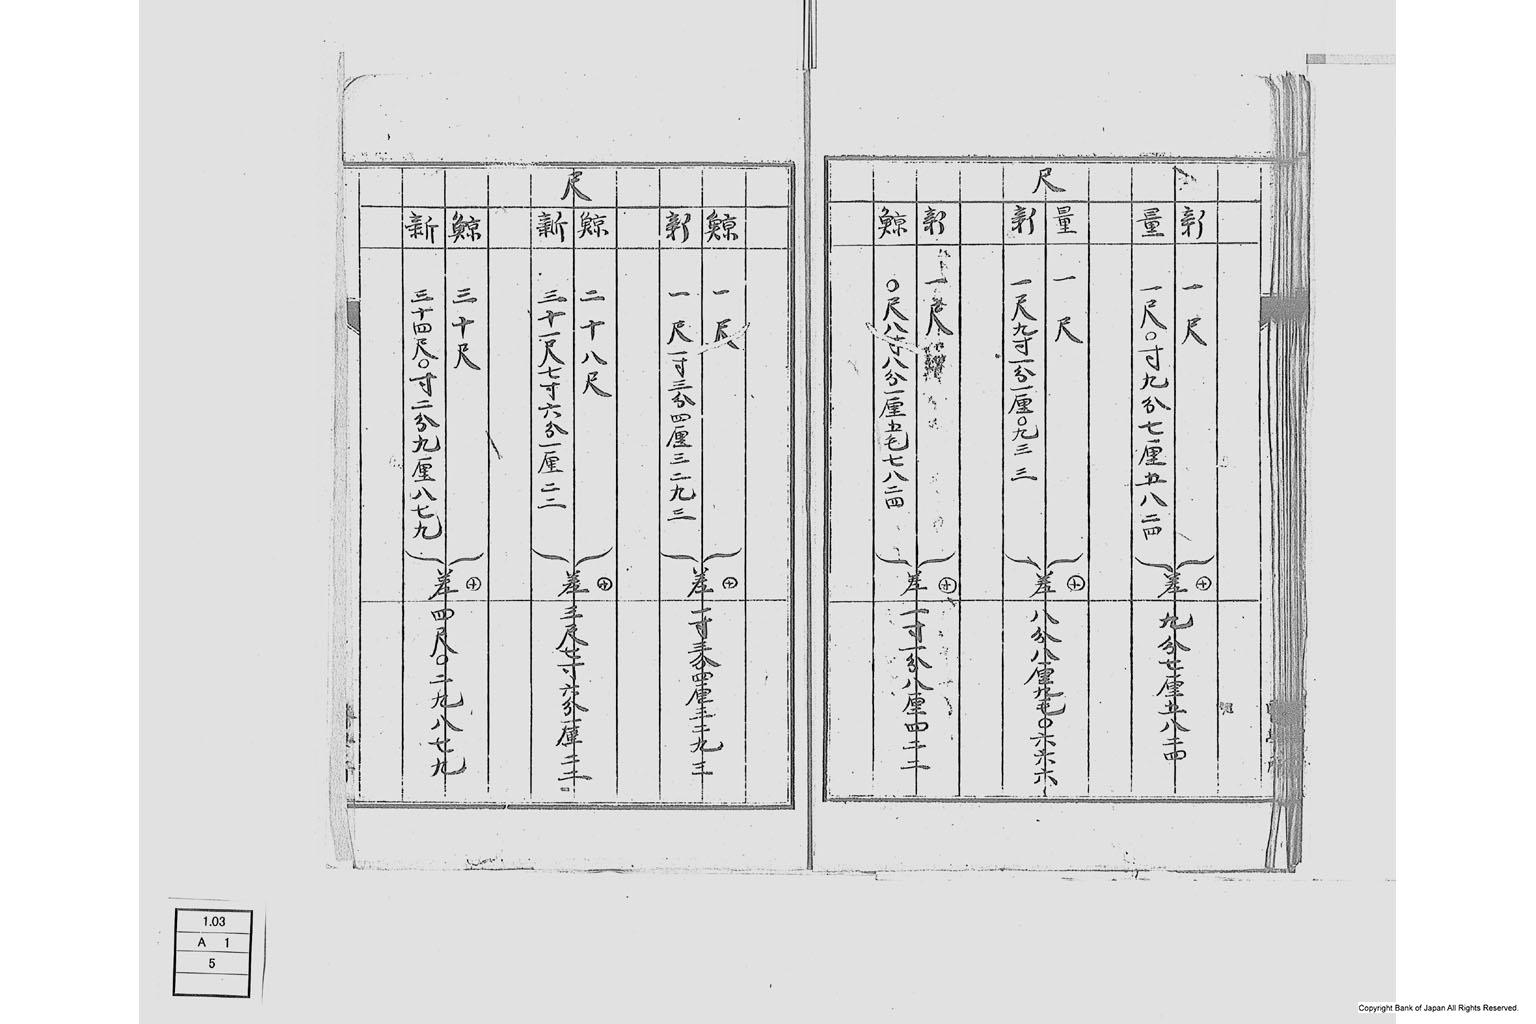 尺
新 一尺
量 一尺〇寸九分七厘五八二四
⊕
差 九分七厘五八二四
量 一尺
新 一尺九寸一分一厘〇九三三
⊕
差 八分八厘九毛〇六六六
新 一尺
鯨 〇尺八寸八分一厘五毛七八二四
⊕
差 一寸一分八厘四二二
尺
鯨 一尺
新 一尺一寸三分四厘三二九三
⊕
差 一寸三分四厘三二九三
鯨 二十八尺
新 三十一尺七寸六分一厘二二
⊕
差 三尺七寸六分一厘二二
鯨 三十尺
新 三十四尺〇寸二分九厘八七九
⊕
差 四尺〇二九八七九
1.03
A 1
5
Copyright Bank of Japan All Rights Reserved.